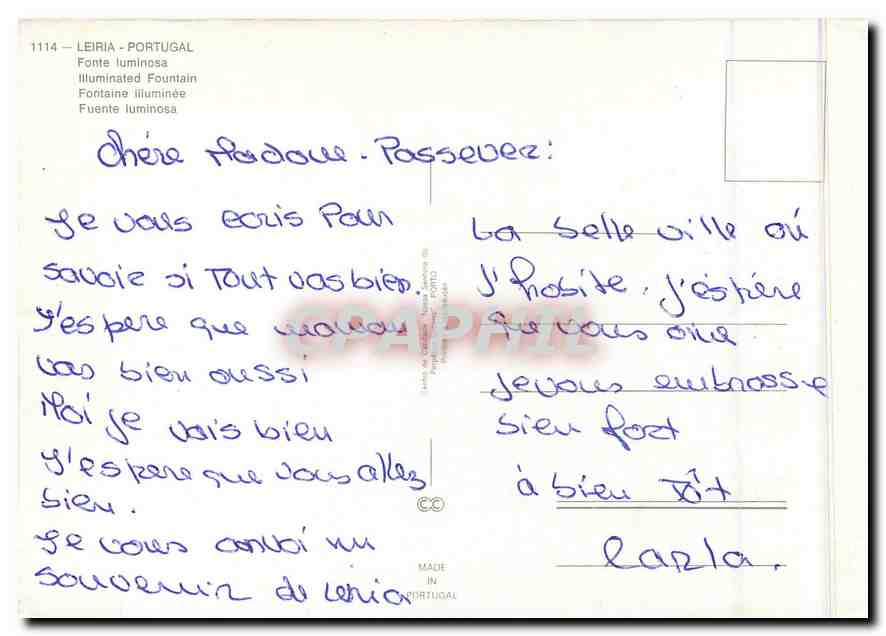 1114 — LEIRIA - PORTUGAL
Fonte luminosa
Illuminated Fountain
Fontaine illuminée
Fuente luminosa
Chére Madame. Passevez:
Je vous ecris Pour
savoir si Tout vas bien.
J'espere que maman
vas bien aussi
Moi je vais bien
J'espere que vous allez
bien.
Je vous anvoi un
souvenir de leiria
La belle ville où
J'habite. J'éspére
que vous aime
Je vous embrasse
bien fort
à bien Tôt
Carla.
Centro de Caridade "Nossa Senhora do
Perpétuo Socorro" PORTO
CC
MADE
IN
PORTUGAL
CPAPHIL